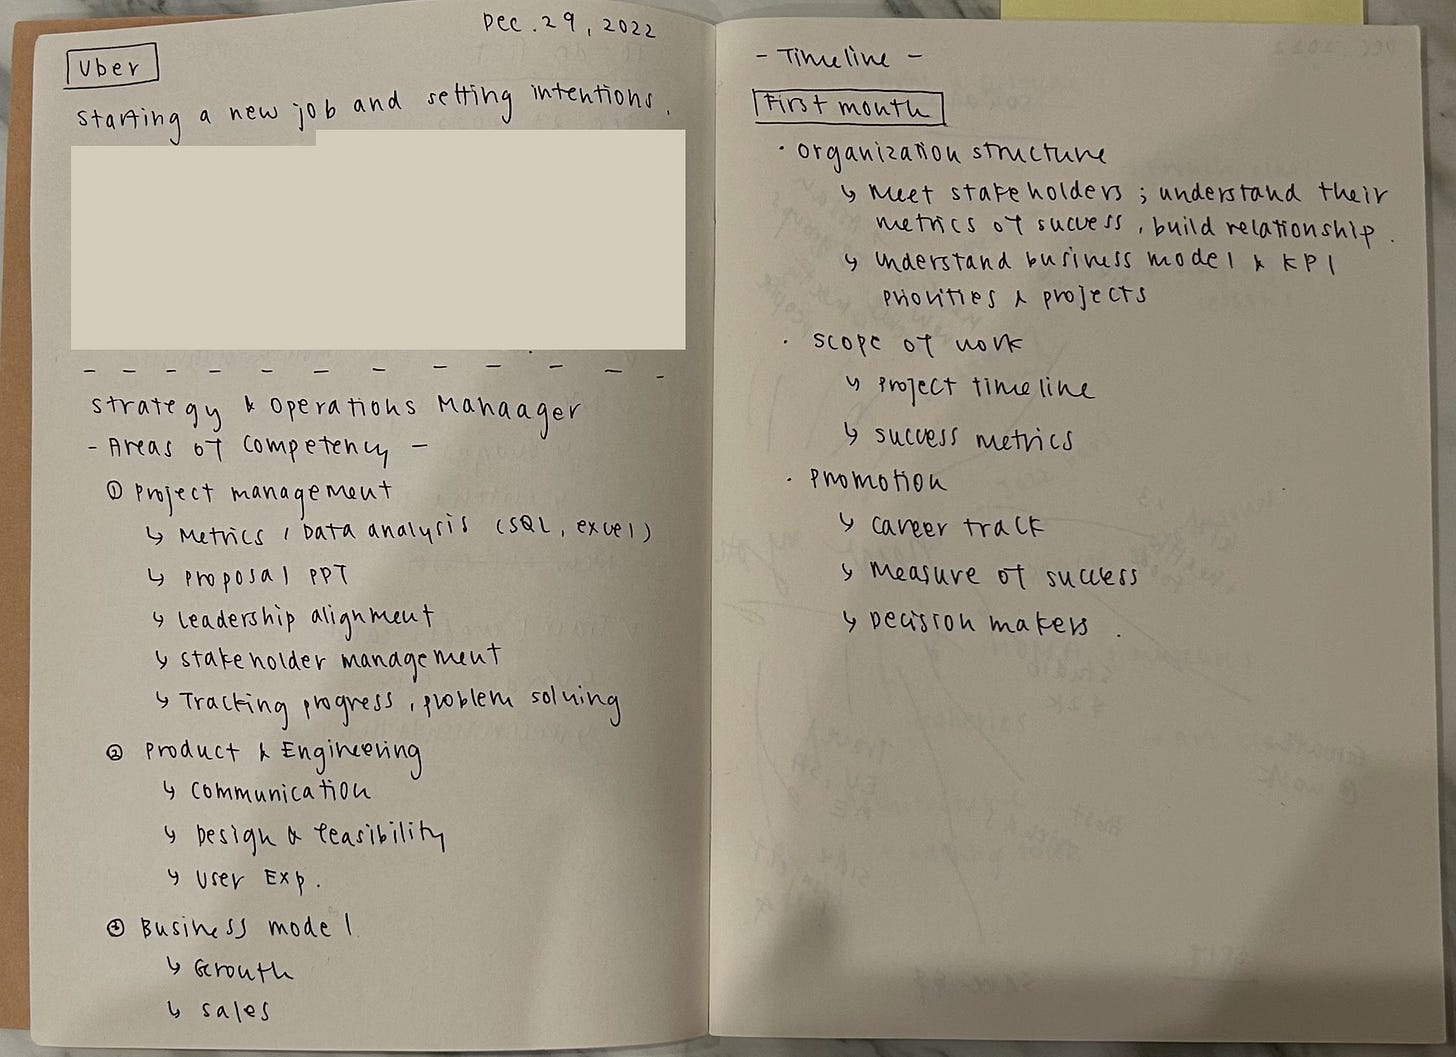 Dec. 29, 2022
Uber
Starting a new job and setting intentions.
Strategy & Operations Manaager
- Areas of competency -
① Project management
↳ Metrics / Data analysis (SQL, excel)
↳ Proposal PPT
↳ Leadership alignment
↳ Stakeholder management
↳ Tracking progress, problem solving
② Product & Engineering
↳ Communication
↳ Design & feasibility
↳ User Exp.
③ Business model
↳ Growth
↳ Sales
- Timeline -
First month
· Organization structure
↳ Meet stakeholders ; understand their
metrics of success, build relationship.
↳ Understand business model & KPI
priorities & projects
· Scope of work
↳ Project timeline
↳ Success metrics
· Promotion
↳ Career track
↳ Measure of success
↳ Decision makers.